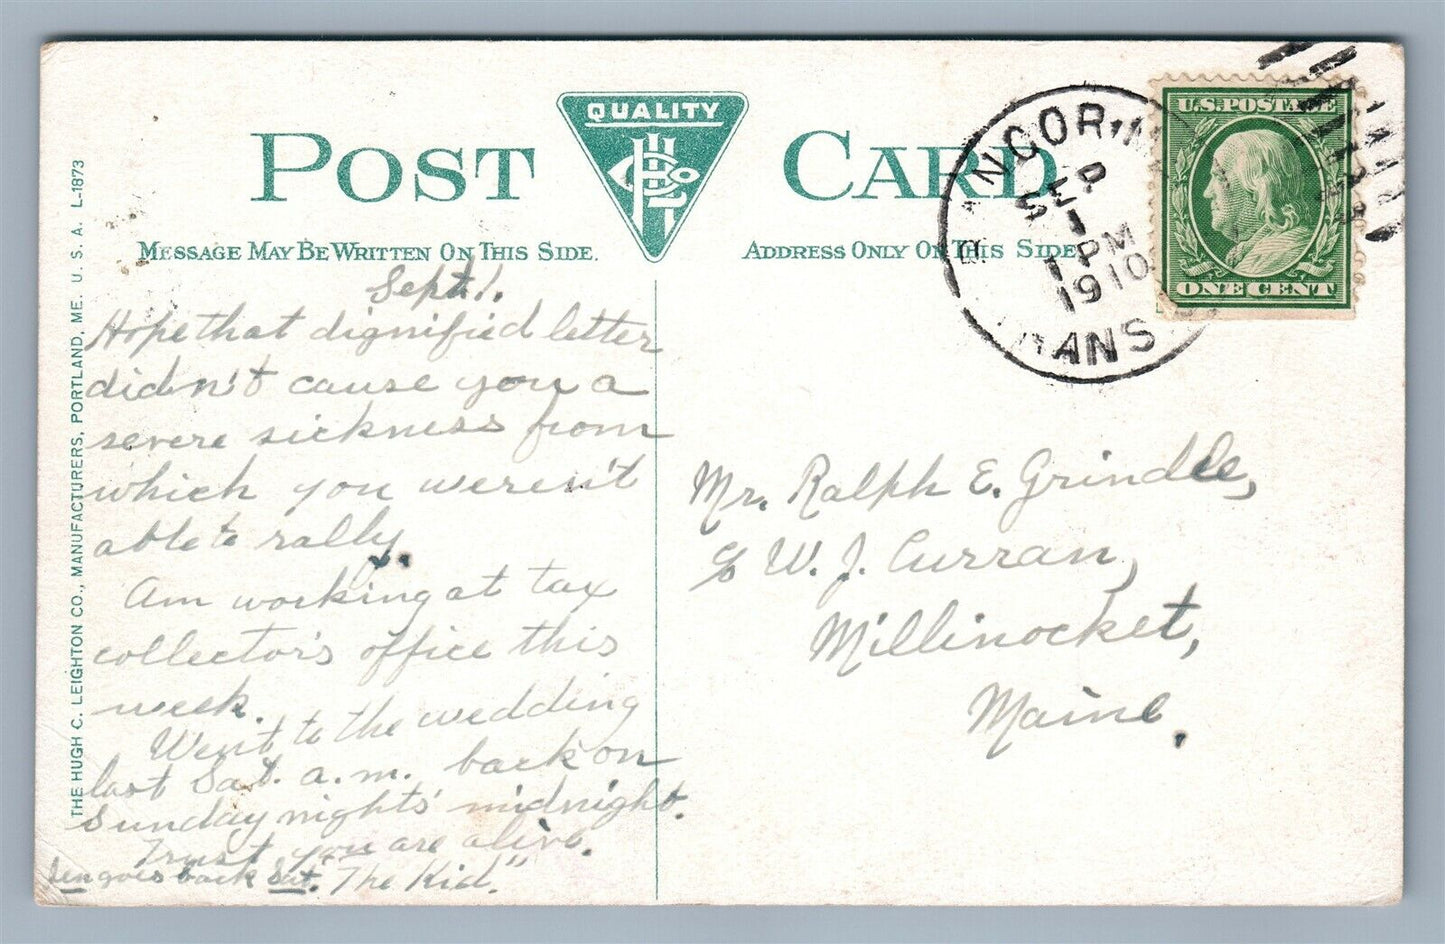 POST CARD
QUALITY
MESSAGE MAY BE WRITTEN ON THIS SIDE.
ADDRESS ONLY ON THIS SIDE
THE HUGH C. LEIGHTON CO., MANUFACTURERS, PORTLAND, ME. U. S. A. L-1873
BANGOR, M
SEP
1
1 PM
1910
TRANS
U.S. POSTAGE
ONE CENT
Sept. 1.
Hope that dignified letter
didn't cause you a
severe sickness from
which you weren't
able to rally.
Am working at tax
collector's office this
week.
Went to the wedding
last Sat. a.m. back on
Sunday nights' midnight.
Trust you are alive.
"The Kid."
goes back Sat.
Mr. Ralph E. Grindle,
c/o W. J. Curran,
Millinocket,
Maine.